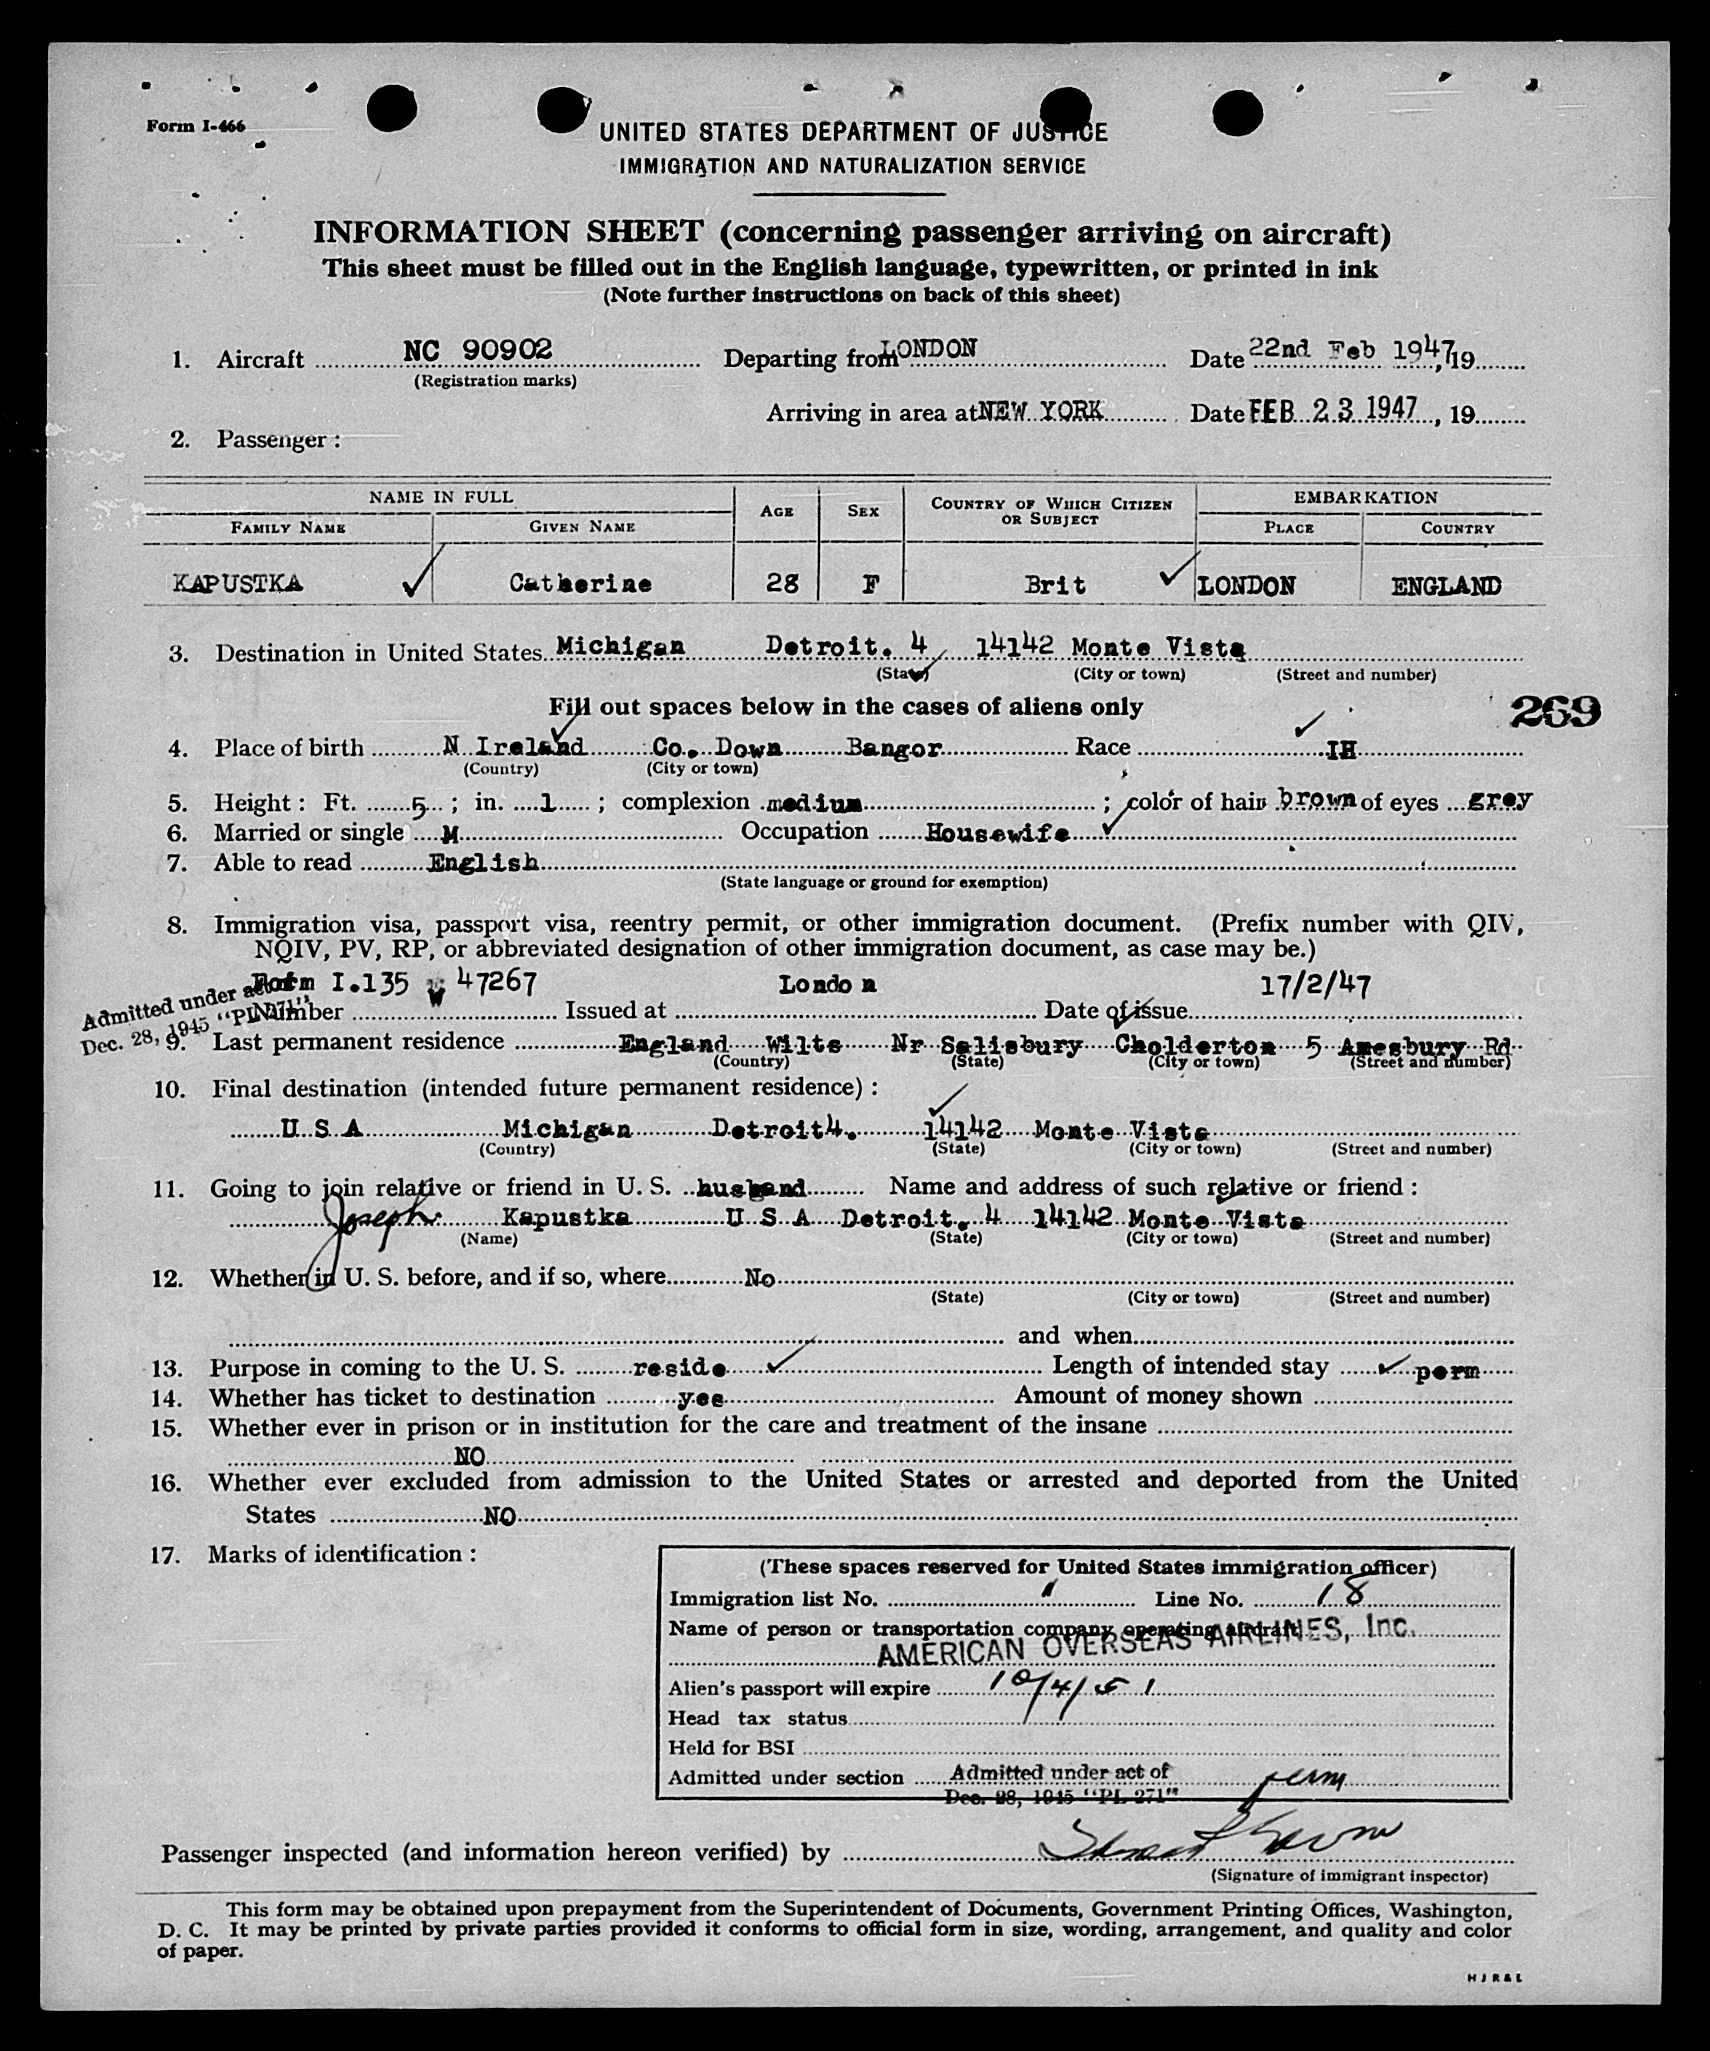 Form I-466
UNITED STATES DEPARTMENT OF JUSTICE
IMMIGRATION AND NATURALIZATION SERVICE
INFORMATION SHEET (concerning passenger arriving on aircraft)
This sheet must be filled out in the English language, typewritten, or printed in ink
(Note further instructions on back of this sheet)
1. Aircraft NC 90902 Departing from LONDON Date 22nd Feb 1947, 19
(Registration marks)
Arriving in area at NEW YORK Date FEB 23 1947, 19
2. Passenger:
NAME IN FULL AGE SEX COUNTRY OF WHICH CITIZEN OR SUBJECT EMBARKATION
FAMILY NAME GIVEN NAME PLACE COUNTRY
KAPUSTKA Catherine 28 F Brit LONDON ENGLAND
3. Destination in United States Michigan Detroit. 4 14142 Monte Vista
(State) (City or town) (Street and number)
Fill out spaces below in the cases of aliens only
269
4. Place of birth N Ireland Co. Down Bangor Race IH
(Country) (City or town)
5. Height: Ft. 5; in. 1; complexion medium; color of hair brown of eyes grey
6. Married or single M Occupation Housewife
7. Able to read English
(State language or ground for exemption)
8. Immigration visa, passport visa, reentry permit, or other immigration document. (Prefix number with QIV,
NQIV, PV, RP, or abbreviated designation of other immigration document, as case may be.)
Form I.135 W 47267 London 17/2/47
Admitted under act of
Dec. 28, 1945 "PL 271"
Number Issued at Date of issue
9. Last permanent residence England Wilts Nr Salisbury Cholderton 5 Amesbury Rd
(Country) (State) (City or town) (Street and number)
10. Final destination (intended future permanent residence):
U S A Michigan Detroit4. 14142 Monte Vista
(Country) (State) (City or town) (Street and number)
11. Going to join relative or friend in U. S. husband Name and address of such relative or friend:
Joseph Kapustka U S A Detroit. 4 14142 Monte Vista
(Name) (State) (City or town) (Street and number)
12. Whether in U. S. before, and if so, where No
(State) (City or town) (Street and number)
and when
13. Purpose in coming to the U. S. reside Length of intended stay perm
14. Whether has ticket to destination yes Amount of money shown
15. Whether ever in prison or in institution for the care and treatment of the insane
NO
16. Whether ever excluded from admission to the United States or arrested and deported from the United
States NO
17. Marks of identification:
(These spaces reserved for United States immigration officer)
Immigration list No. Line No. 18
Name of person or transportation company operating aircraft
AMERICAN OVERSEAS AIRLINES, Inc.
Alien's passport will expire 10/4/51
Head tax status
Held for BSI
Admitted under section Admitted under act of perm
Dec. 28, 1945 "PL 271"
Passenger inspected (and information hereon verified) by
(Signature of immigrant inspector)
This form may be obtained upon prepayment from the Superintendent of Documents, Government Printing Offices, Washington,
D. C. It may be printed by private parties provided it conforms to official form in size, wording, arrangement, and quality and color
of paper.
H J R & L